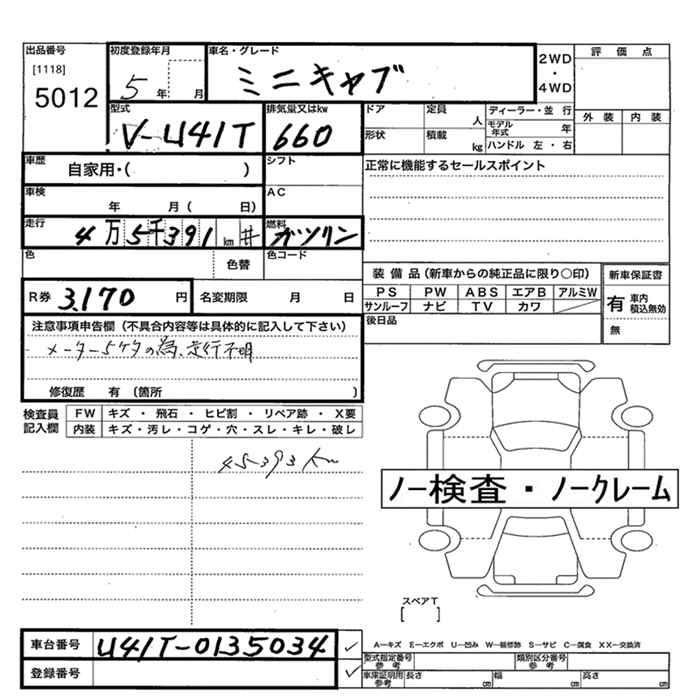 出品番号 初度登録年月 車名・グレード 2WD・4WD 評価点
[1118]
5012 5年 月 ミニキャブ
型式 排気量又はkw ドア 定員 人 ディーラー・並行 外装 内装
V-U41T 660 形状 積載 kg モデル年式 年
ハンドル 左・右
車歴 自家用・( ) シフト 正常に機能するセールスポイント
車検 年 月( 日) AC
走行 4万5千391km # 燃料 ガソリン
色 色替 色コード
装備品(新車からの純正品に限り○印) 新車保証書
R券 3,170円 名変期限 月 日 PS PW ABS エアB アルミW 有 車内積込無効
サンルーフ ナビ TV カワ
注意事項申告欄(不具合内容等は具体的に記入して下さい) 後日品 無
メーター5ケタの為、走行不明
修復歴 有(箇所 )
検査員記入欄 FW キズ・飛石・ヒビ割・リペア跡・X要
内装 キズ・汚レ・コゲ・穴・スレ・キレ・破レ
45393km
ノー検査・ノークレーム
スペアT
[ ]
車台番号 U41T-0135034 ✓ A―キズ E―エクボ U―凹ミ W―補修跡 S―サビ C―腐食 XX―交換済
型式指定番号 参考 類別区分番号 参考
登録番号 ✓ 車庫証明用 参考 長さ cm 幅 cm 高さ cm